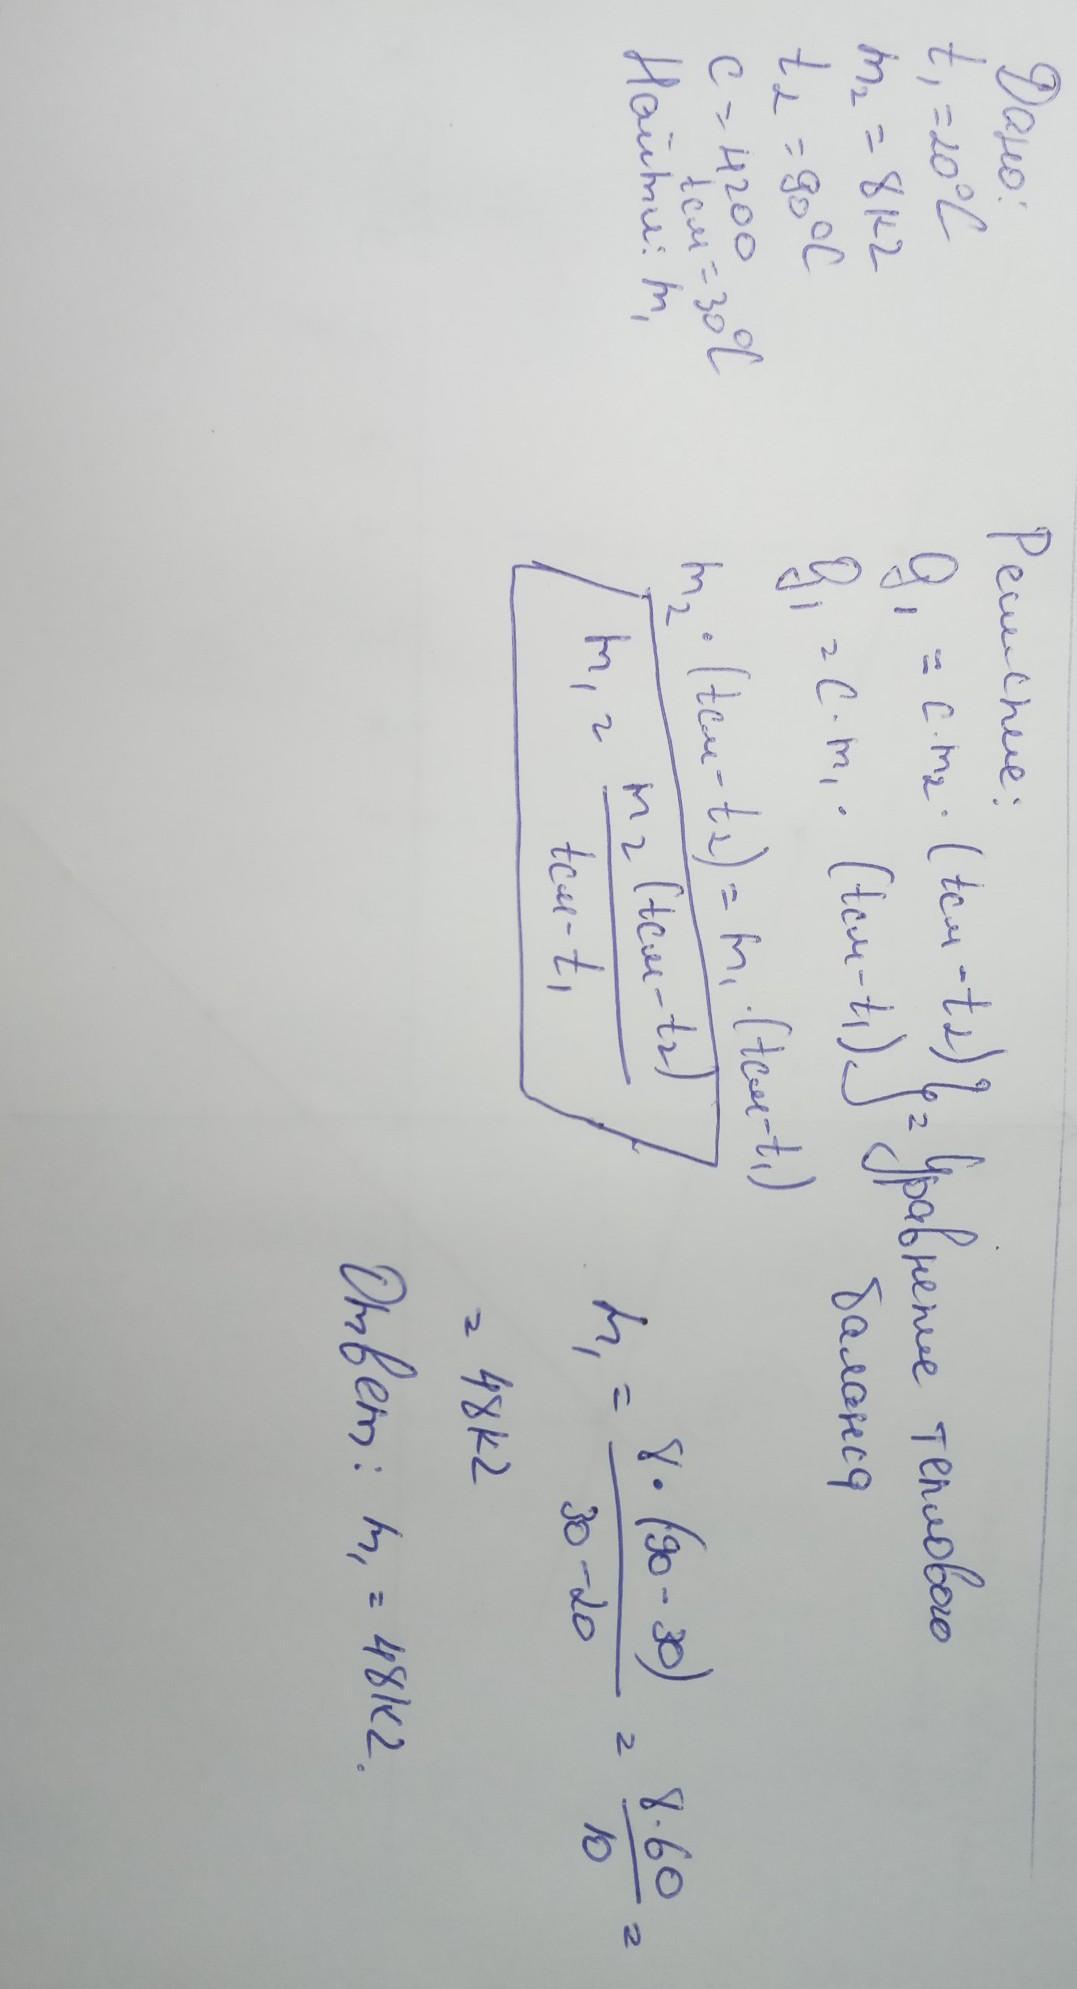 Дано:
t₁ = 20°C
m₂ = 8кг
t₂ = 90°C
c = 4200
tсм = 30°C
Найти: m₁
Решение:
Q₁ = c·m₂·(tсм - t₂) } = Уравнение теплового
Q₁ = c·m₁·(tсм - t₁) баланса
m₂·(tсм - t₂) = m₁·(tсм - t₁)
m₁ = m₂(tсм - t₂)
tсм - t₁
m₁ = 8·(90 - 30) / 30 - 20 = 8·60 / 10 =
= 48кг
Ответ: m₁ = 48кг.